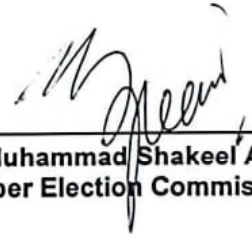 uhammad Shakeel A
ber Election Commis